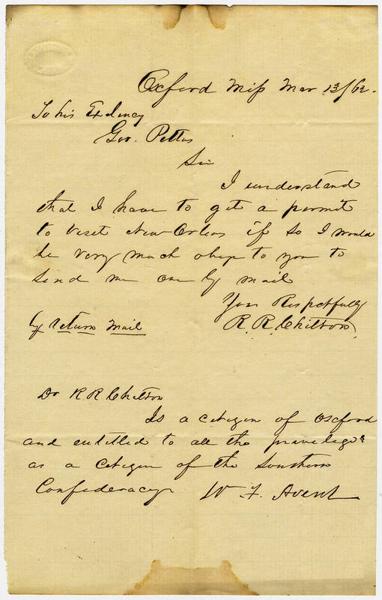 Oxford Miss Mar 13/62.
To his Exlency
Gov. Pettus
Sir
I understand
that I have to get a permit
to visit New Orleas if so I would
be very much oblige to you to
send me one by mail
Your Respctfully
R. R. Chilton
by return mail
Dr R R Chilton
Is a citizen of Oxford
and entitled to all the privileges
as a citizen of the Southern
Confederacy W. F. Avent